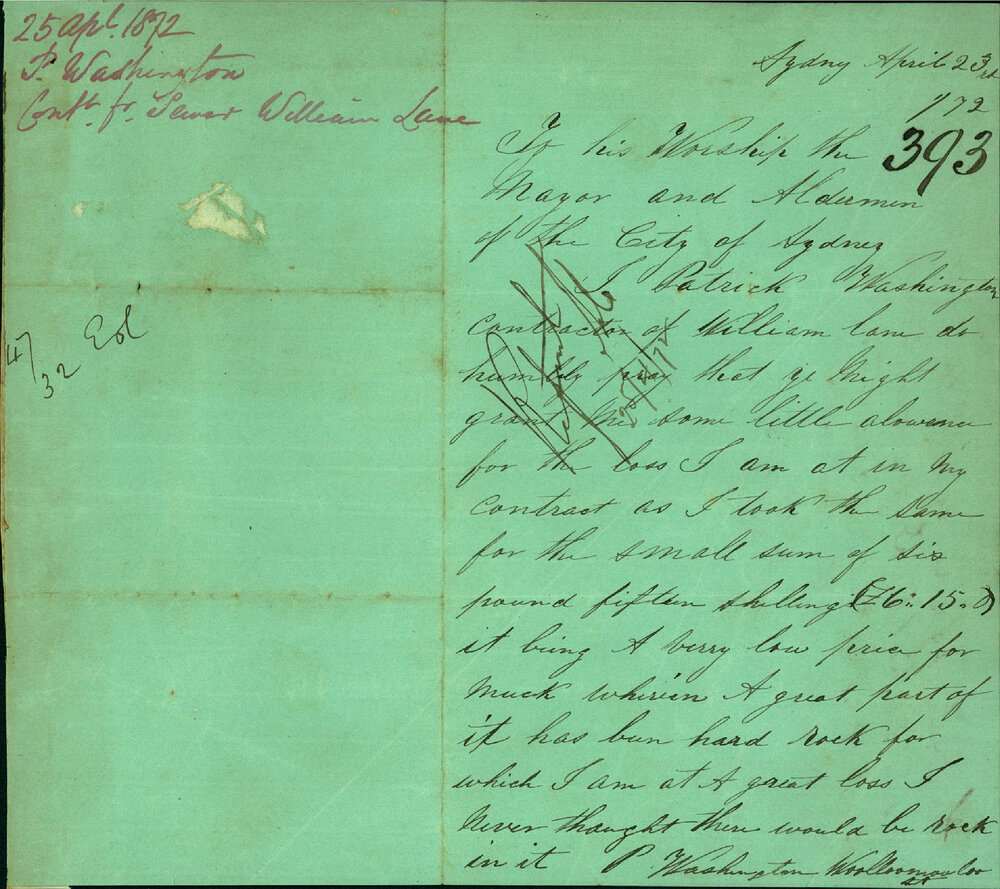 25 Apl. 1872
P. Washington
Contr. fr. Sewer William Lane
47/32 Col
Sydny April 23rd
/72
393
To his Worship the
Mayor and Aldermen
of the City of Sydney
I Patrick Washington
Contractor of William lane do
humbly pray that ye Might
grant Me some little alowence
for the loss I am at in My
Contract as I took the same
for the small sum of six
pound fifteen shillings (£6:15:0)
it being A verry low price for
Muck wherein A great part of
it has been hard rock for
which I am at A great loss I
Never thought there would be rock
in it P Washington Woolloomooloo
25/4/72